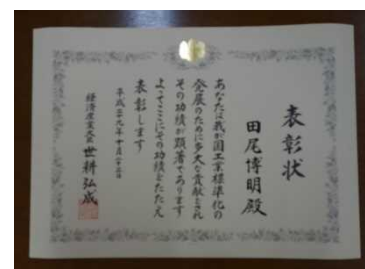 表彰状
田尾博明殿
あなたは我が国工業標準化の
発展のために多大な貢献をされ
その功績が顕著であります
よってここにその功績をたたえ
表彰します
平成二十九年十月二十三日
経済産業大臣 世耕弘成